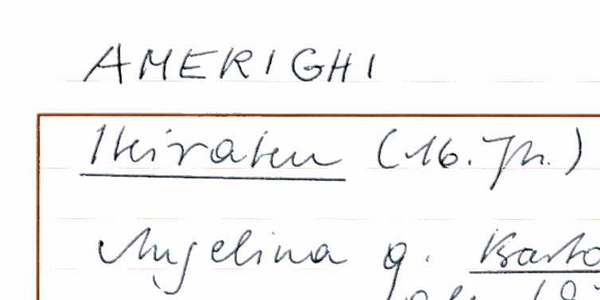 AMERIGHI
Heiraten (16. Jh.)
Angelina q. Barto